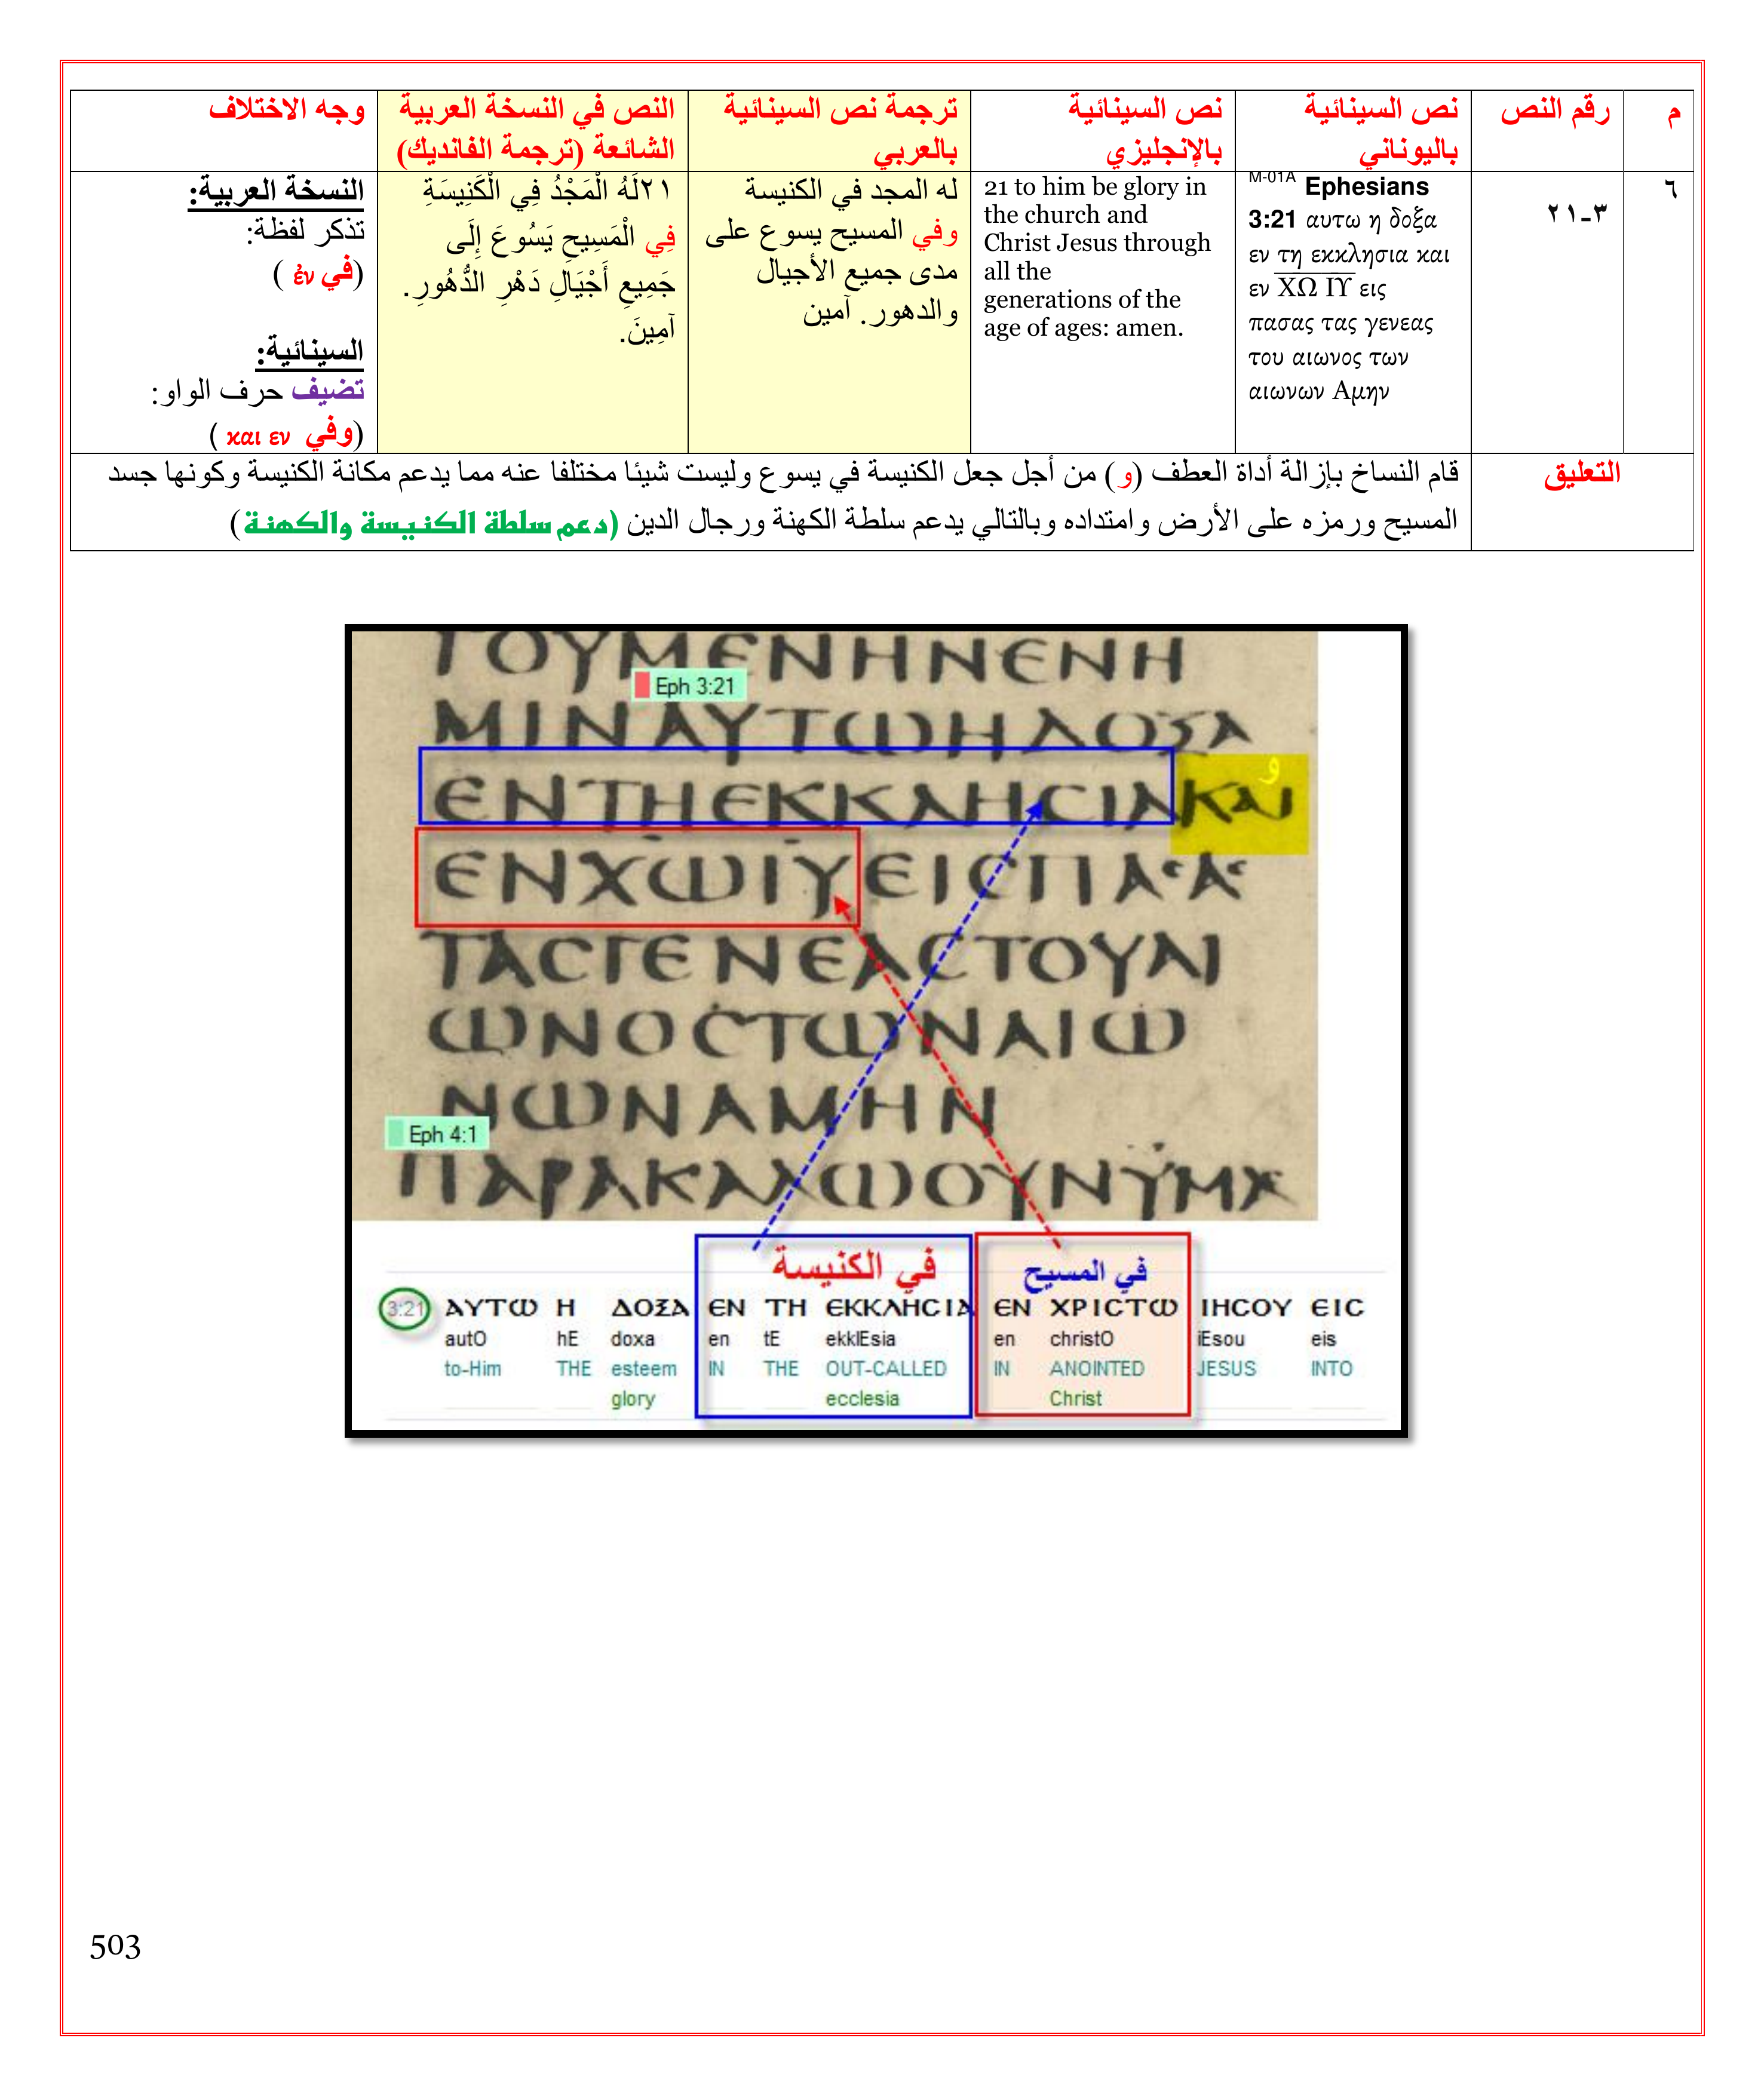 م
رقم النص
نص السينائية
باليوناني
نص السينائية
بالإنجليزي
ترجمة نص السينائية
بالعربي
النص في النسخة العربية
الشائعة (ترجمة الفانديك)
وجه الاختلاف
٦
٣-٢١
M-01A Ephesians
3:21 αυτω η δοξα
εν τη εκκλησια και
εν ΧΩ ΙΥ εις
πασας τας γενεας
του αιωνος των
αιωνων Αμην
21 to him be glory in
the church and
Christ Jesus through
all the
generations of the
age of ages: amen.
له المجد في الكنيسة
وفي المسيح يسوع على
مدى جميع الأجيال
والدهور. آمين
٢١لَهُ الْمَجْدُ فِي الْكَنِيسَةِ
فِي الْمَسِيحِ يَسُوعَ إِلَى
جَمِيعِ أَجْيَالِ دَهْرِ الدُّهُورِ.
آمِينَ.
النسخة العربية:
تذكر لفظة:
(في ἐν )
السينائية:
تضيف حرف الواو:
(وفي και εν )
التعليق
قام النساخ بإزالة أداة العطف (و) من أجل جعل الكنيسة في يسوع وليست شيئا مختلفا عنه مما يدعم مكانة الكنيسة وكونها جسد
المسيح ورمزه على الأرض وامتداده وبالتالي يدعم سلطة الكهنة ورجال الدين (دعم سلطة الكنيسة والكهنة)
ΤΟΥΜΕΝΗΝΕΝΗ
Eph 3:21
ΜΙΝΑΥΤΩΗΔΟΞΑ
و
ΕΝΤΗΕΚΚΛΗCΙΑΚΑΙ
ΕΝΧΩΙΥΕΙCΠΑCΑC
ΤΑCΓΕΝΕΑCΤΟΥΑΙ
ΩΝΟCΤΩΝΑΙΩ
ΝΩΝΑΜΗΝ
Eph 4:1
ΠΑΡΑΚΑΛΩΟΥΝΫΜΑ
في الكنيسة في المسيح
3:21 ΑΥΤΩ Η ΔΟΞΑ ΕΝ ΤΗ ΕΚΚΛΗCΙΑ ΕΝ ΧΡΙCΤΩ ΙΗCΟΥ ΕΙC
autO hE doxa en tE ekklEsia en christO iEsou eis
to-Him THE esteem IN THE OUT-CALLED IN ANOINTED JESUS INTO
glory ecclesia Christ
503